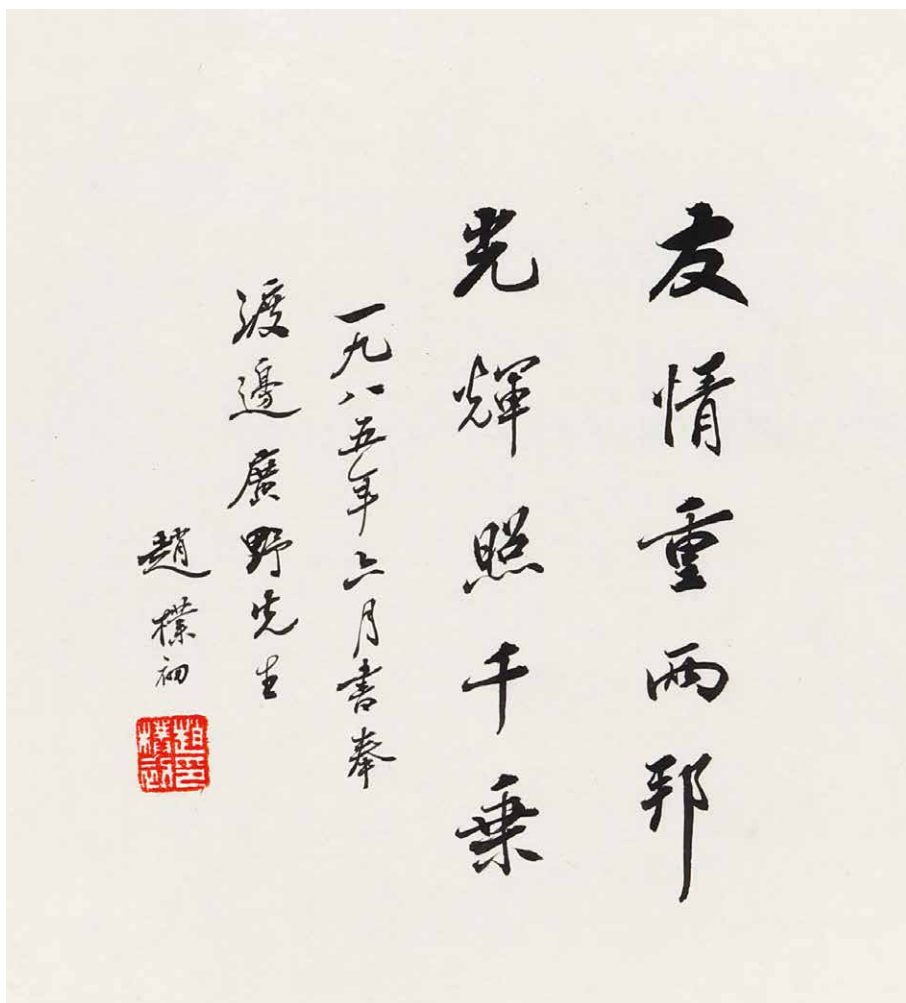 友情重兩邦
光輝照千乘
一九八五年六月書奉
渡邊廣野先生
趙樸初
趙樸初印